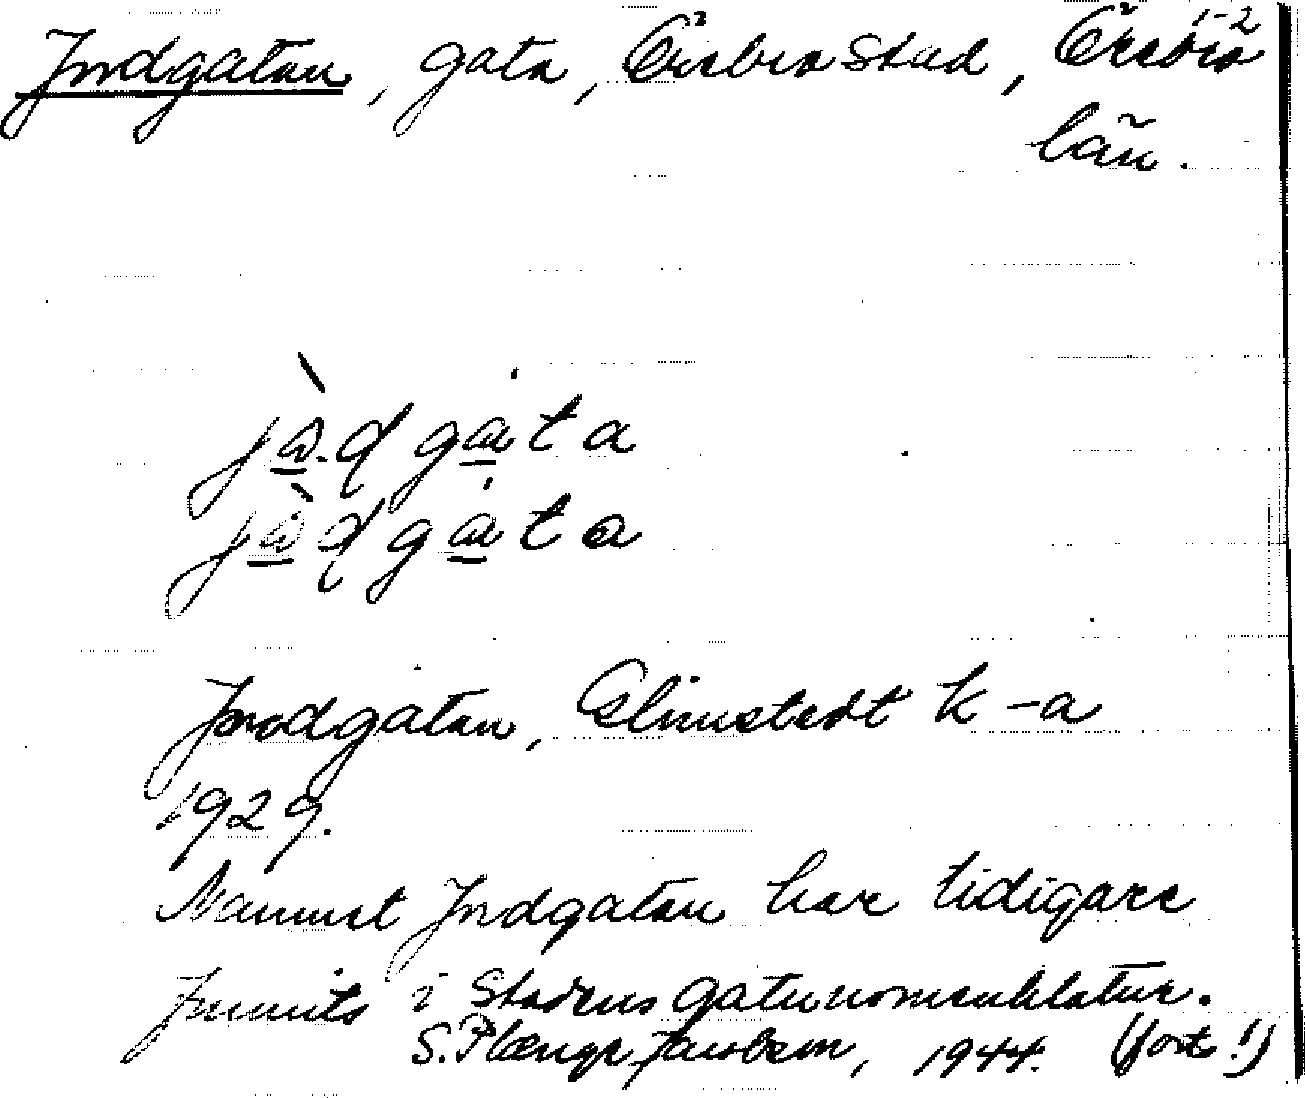 Jordgatan, gata, Örebro stad, Örebro 1-2
län.
Jordgatan, Elmstedt k-a
1929.
Namnet Jordgatan har tidigare
funnits i stadens gatunomenklatur.
S. Plænge Jacobson, 1944. (forts!)